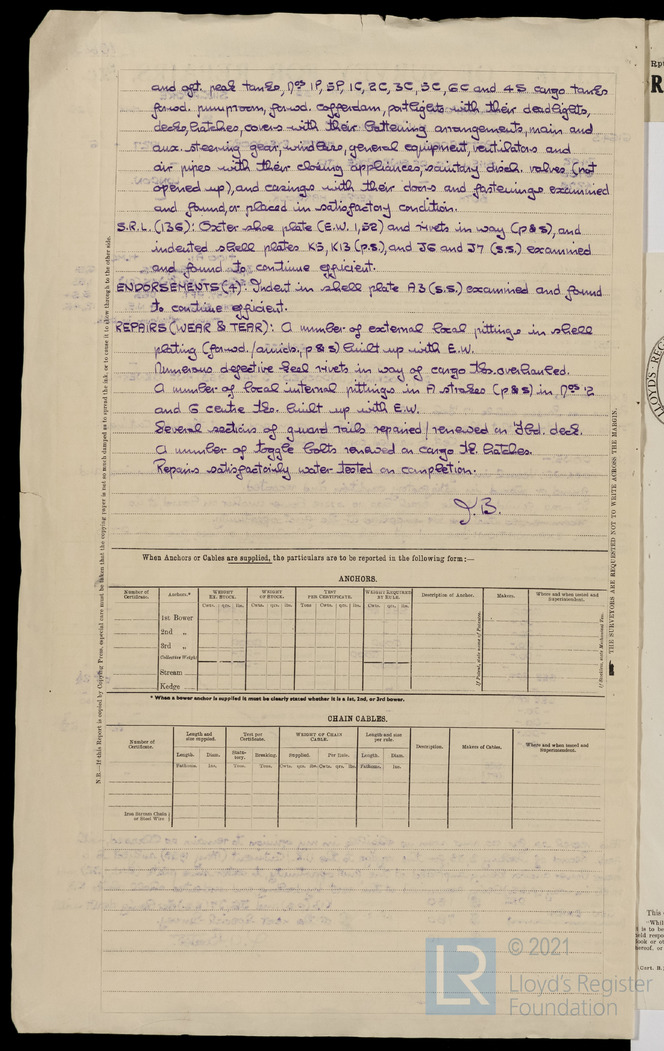 and aft. peak tanks, Nos 1P, 5P, 1C, 2C, 3C, 5C, 6C and 4S cargo tanks
forwd. pumproom, forwd. cofferdam, portlights with their deadlights,
decks, hatches, covers with their battening arrangements, main and
aux. steering gear, windlass, general equipment, ventilators and
air pipes with their closing appliances, sanitary disch. valves (not
opened up), and casings with their doors and fastenings examined
and found, or placed in satisfactory condition.
S.R.L. (136): Oxter shoe plate (E.W. 1,52) and rivets in way (p & s), and
indented shell plates K5, K13 (p.s.), and J6 and J7 (s.s.) examined
and found to continue efficient.
ENDORSEMENTS (4): Indent in shell plate A3 (s.s.) examined and found
to continue efficient.
REPAIRS (WEAR & TEAR): A number of external local pittings in shell
plating (forwd./amids., p & s) built up with E.W.
Numerous defective seal rivets in way of cargo tks. overhauled.
A number of local internal pittings in A strakes (p & s) in Nos 2
and 6 centre tks. built up with E.W.
Several sections of guard rails repaired/renewed on deck.
A number of toggle bolts renewed on cargo tk. hatches.
Repairs satisfactorily water tested on completion.
J.B.
When Anchors or Cables are supplied, the particulars are to be reported in the following form:—
ANCHORS.
Number of Certificate. Anchors.* WEIGHT EX. STOCK. WEIGHT OF STOCK. TEST PER CERTIFICATE. WEIGHT REQUIRED BY RULE. Description of Anchor. Makers. Where and when tested and Superintendent.
Cwts. qrs. lbs. Cwts. qrs. lbs. Tons Cwt. qrs. lbs. Cwts. qrs. lbs.
1st Bower
2nd „
3rd „
Collective Weight
Stream
Kedge
* When a bower anchor is supplied it must be clearly stated whether it is a 1st, 2nd, or 3rd bower.
CHAIN CABLES.
Number of Certificate. Length and size supplied. Test per Certificate. WEIGHT OF CHAIN CABLE. Length and size per rule. Description. Makers of Cables. Where and when tested and Superintendent.
Length. Diam. Statutory. Breaking. Supplied. Per Rule. Length. Diam.
Fathoms. Ins. Tons. Tons. Cwts. qrs. lbs. Cwts. qrs. lbs. Fathoms. Ins.
Iron Stream Chain or Steel Wire
N.B.—If this Report is copied by Copying Press, especial care must be taken that the copying paper is not so much damped as to spread the ink, or to cause it to show through to the other side.
THE SURVEYORS ARE REQUESTED NOT TO WRITE ACROSS THE MARGIN.
LLOYD'S REG
LR
© 2021
Lloyd's Register
Foundation